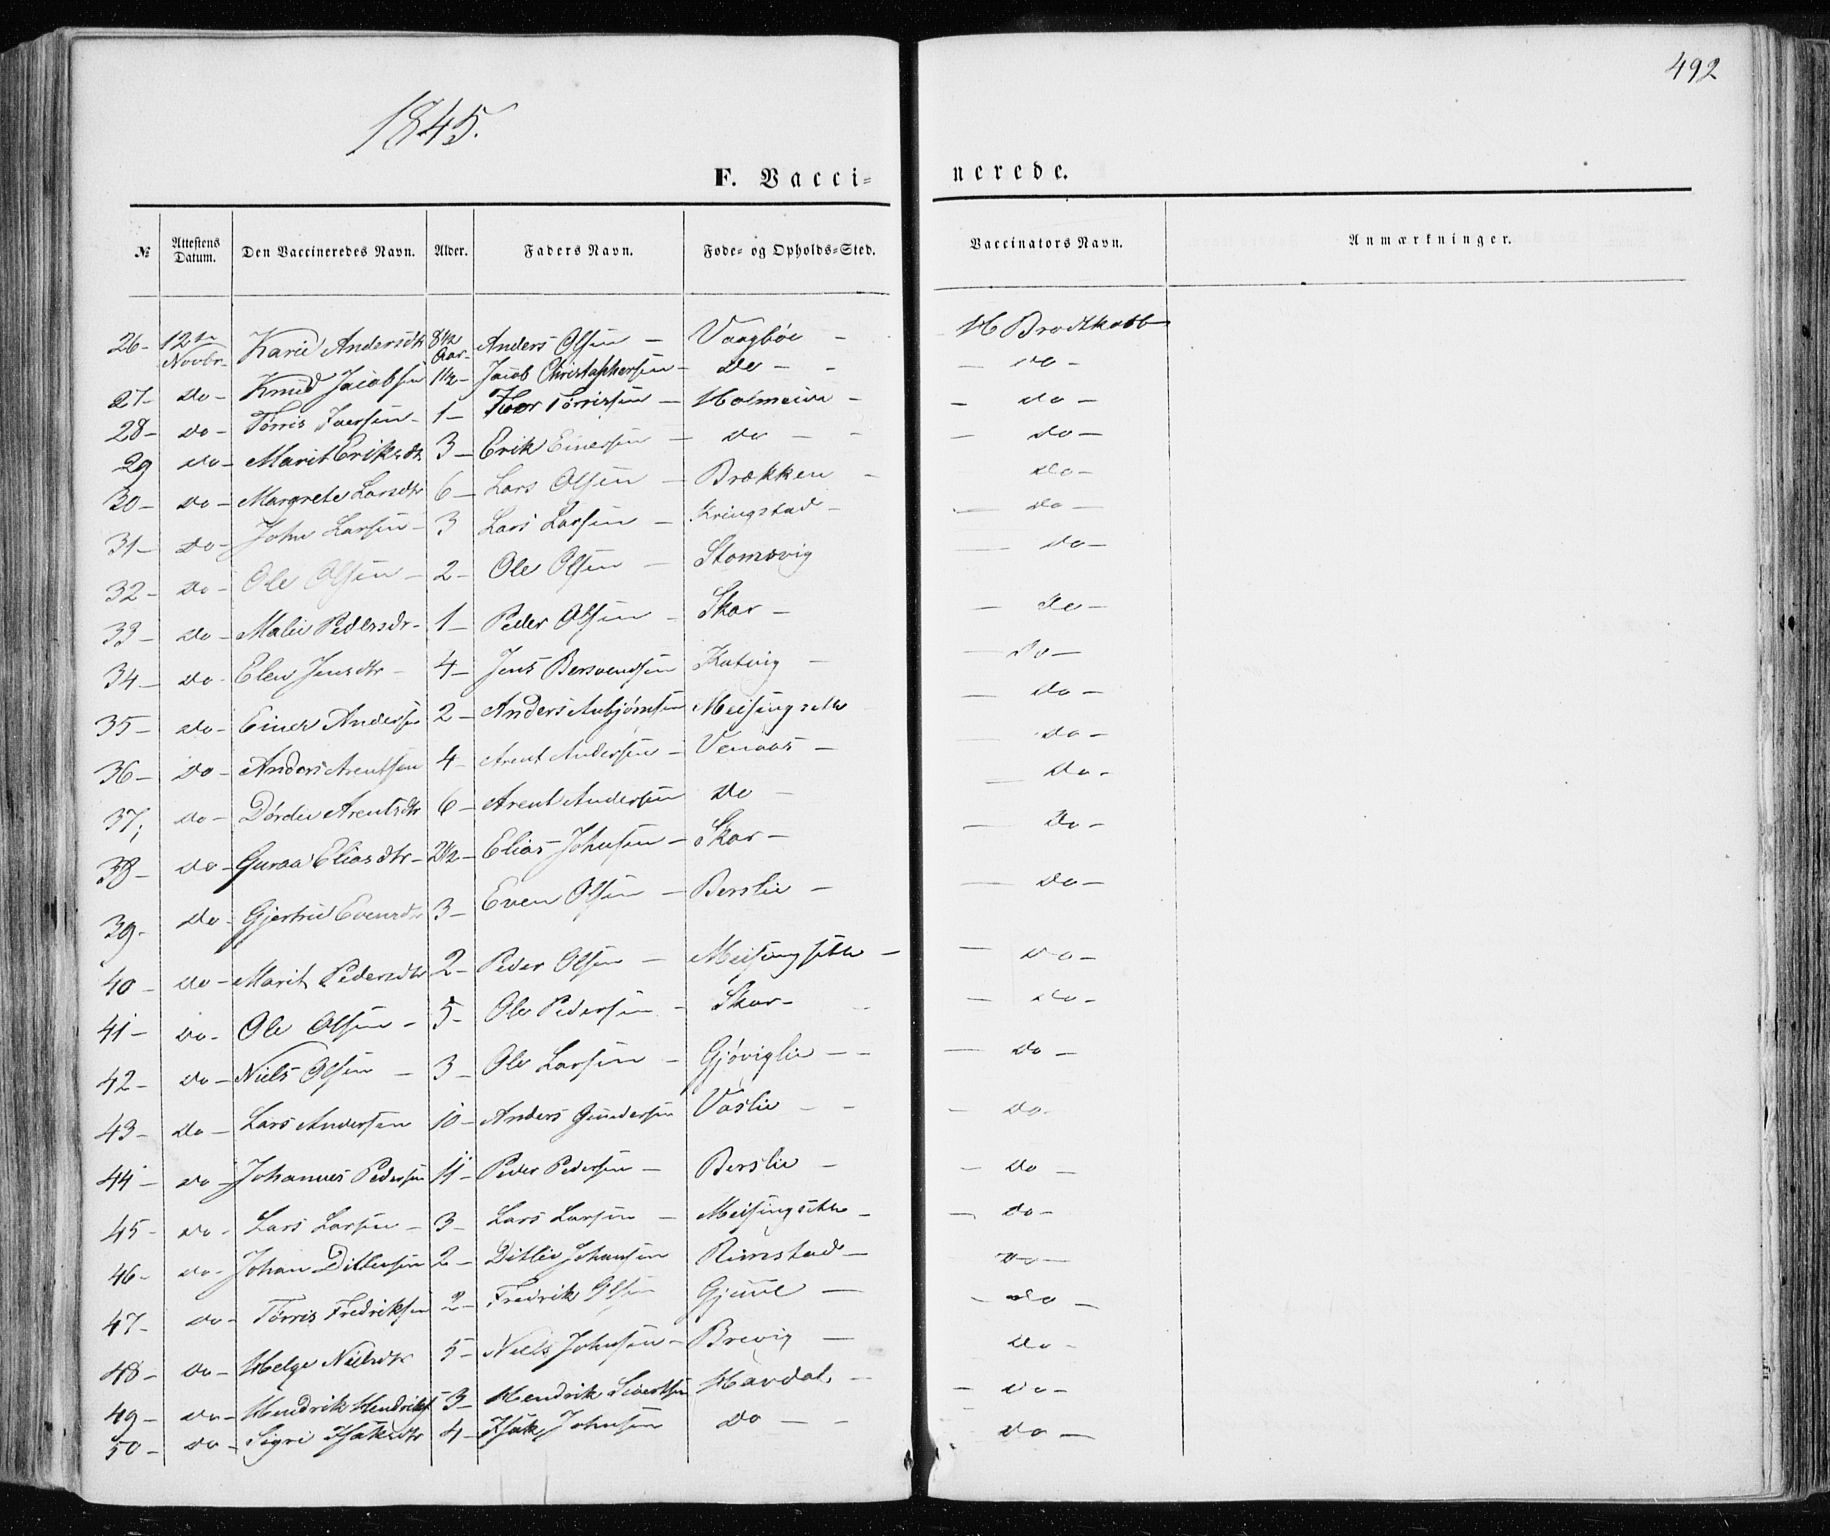 492
1845.
F. Vacci= nerede.
№ Attestens Datum. Den Vaccineredes Navn. Alder. Faders Navn. Føde= og Opholds=Sted. Vaccinators Navn. Anmærkninger.
26- 12te Novbr- Kari Andersdtr 8 1/2 Aar- Anders Olsen - Vaagbøe - H Brodtkorb
27- do- Knud Jacobsen 1 1/2- Jacob Christophersen- Do - - do -
28- do- Tørris Iversen- 1- Iver Tørrissen - Holmeide - - do -
29 do- Marit Eriksdtr 3- Erik Einersen - do - - - do -
30- do- Margrete Larsdtr 6- Lars Olsen - Brækken - do-
31- do- John Larsen- 3 Lars Larsen - Kringstad - - do -
32- do- Ole Olsen- 2- Ole Olsen - Stomsvig - do-
33- do- Mali Pedersdr- 1- Peder Olsen - Skar- - do-
34- do- Elen Jensdtr- 4- Jens Bersvendsen Katvig - - do-
35- do- Einer Andersen 2- Anders Anbjørnsen Meisingseth - do-
36- do- Anders Arentsen 4- Arent Andersen- Venaas- - do-
37; do- Dørdei Arentsdtr 6- Arent Andersen do - - do-
38- do- Guroa Eliasdtr- 2 1/2- Elias Johnsen- Skar- - do-
39- do- Gjertru Evensdtr 3- Even Olsen - Berslie - - do-
40- do- Marit Pedersdtr 2- Peder Olsen - Meisingseth - - do-
41- do- Ole Olsen- 5- Ole Pedersen - Skar- - do-
42- do- Niels Olsen - 3- Ole Larsen - Gjøviglie - - - do -
43- do- Lars Andersen 10- Anders Gundersen Vaslie - - - do-
44- do- Johannes Pedersen 11- Peder Pedersen - Berslie - - do -
45- do- Lars Larsen- 3- Lars Larsen - Meisingseth - - do-
46- do- Johan Ditlevsen 2- Ditlev Johansen Rimstad- do-
47- do- Tørris Fredriksen 2- Fredrik Olsen - do -
48- do- Helge Nielsdtr 5- Niels Johnsen- Brevig - do-
49- do- Hendrik Hendriks 3- Hendrik Sivertsen Havdal - - do-
50- do- Sigri Isaksdtr 4- Isak Johnsen do - - do-